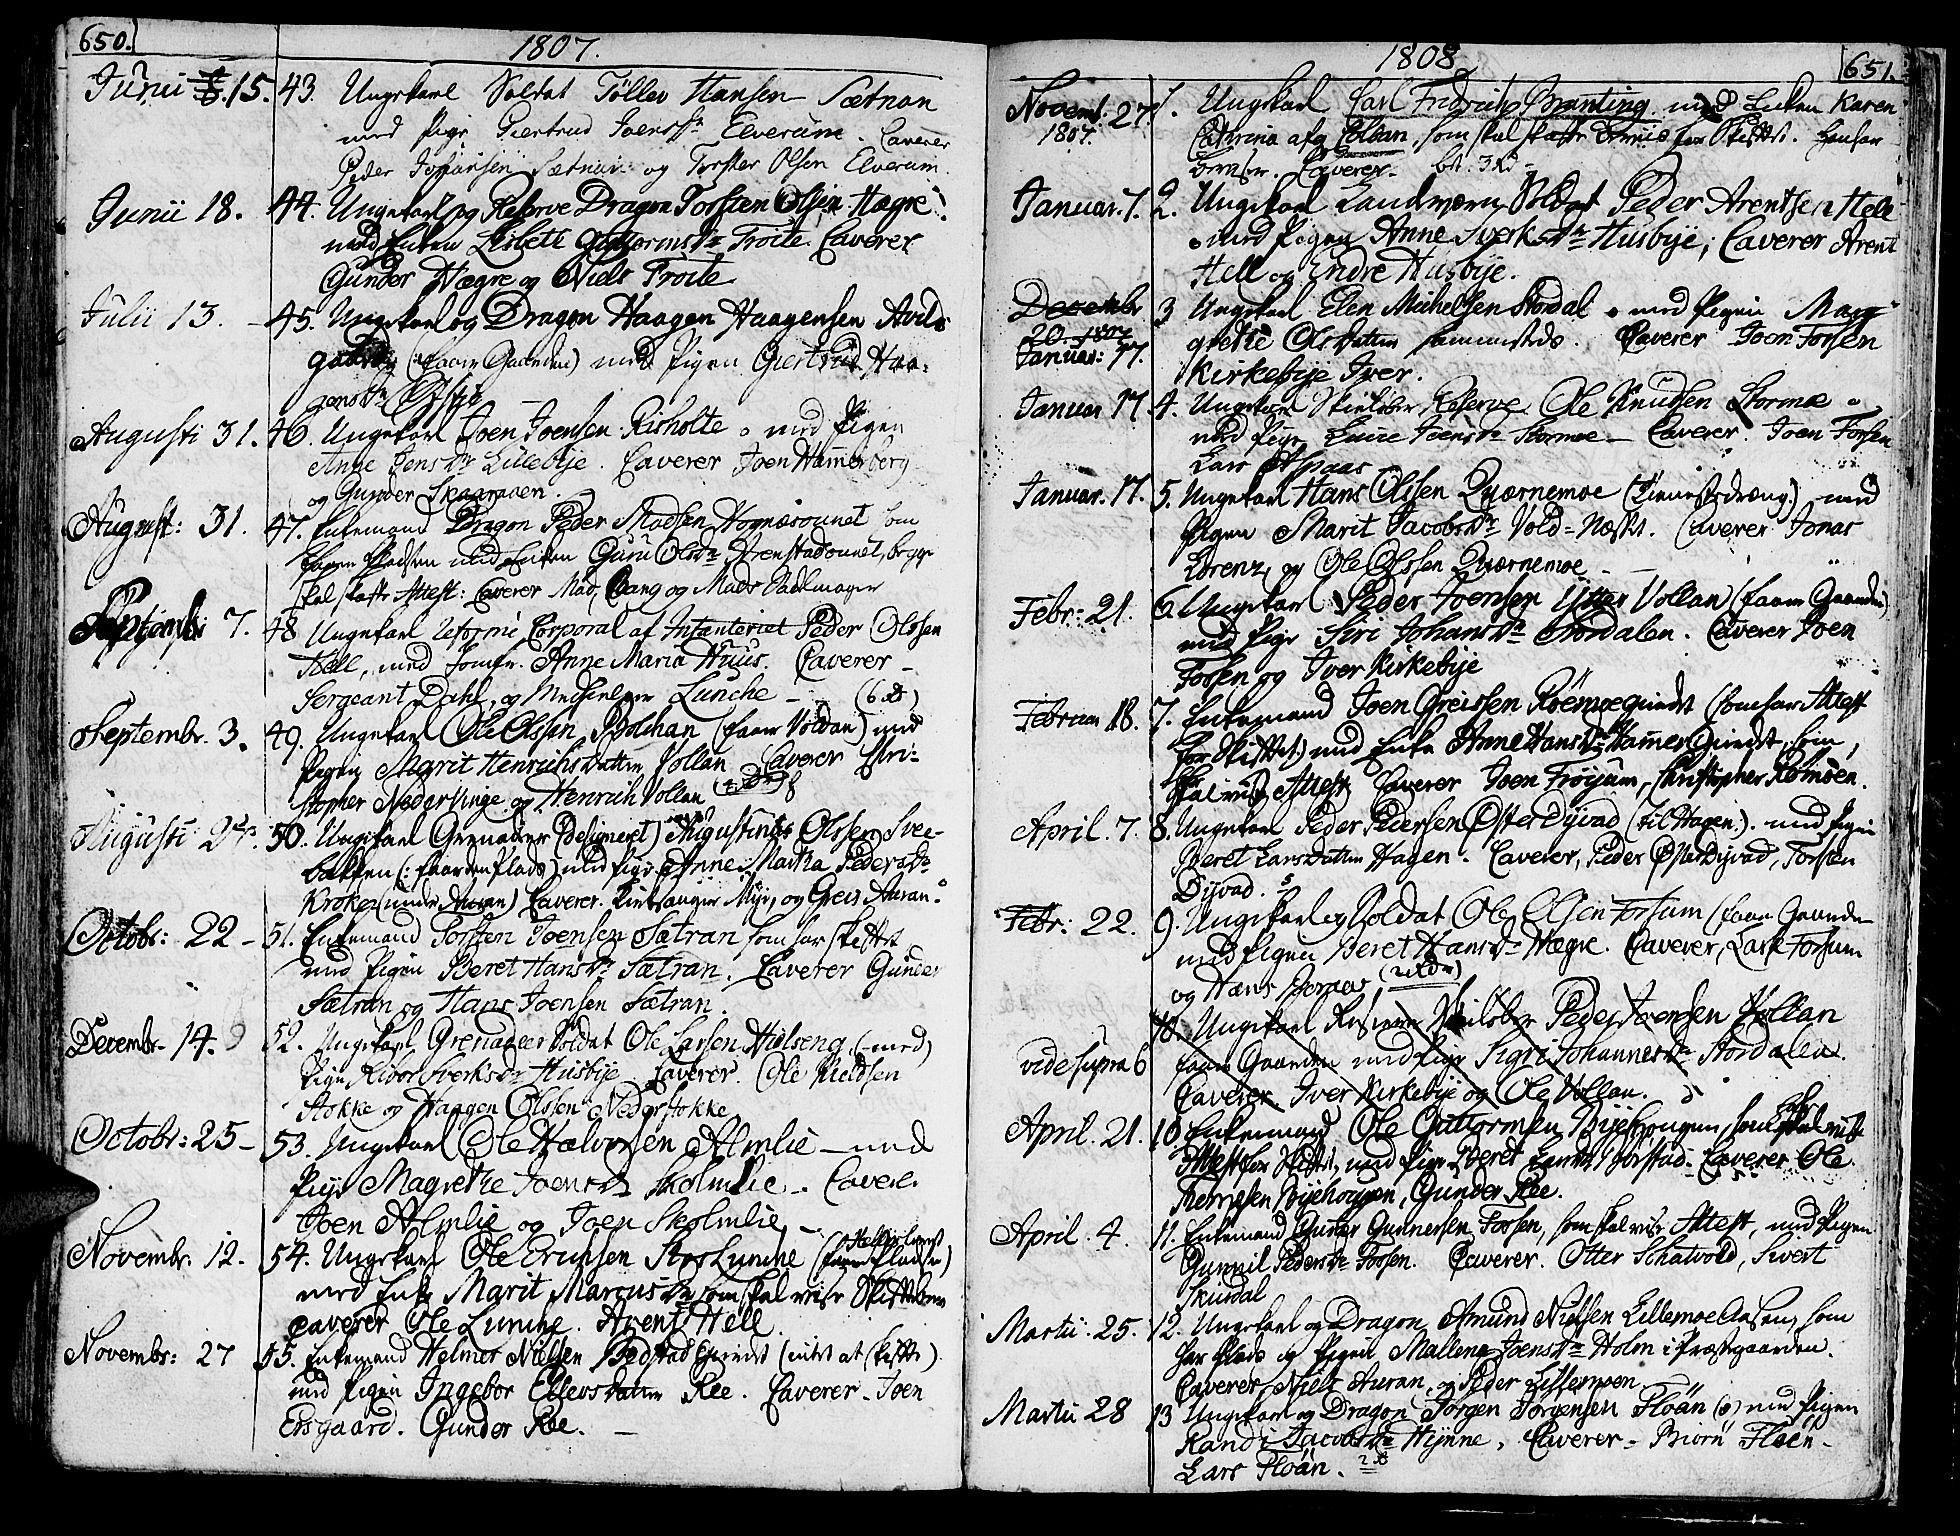 650.
1807.
Junii 15. 43. Ungekarl Soldat Tøllev Hansen Sætnan
med Pige Giertrud Joens Dr Elverum. Caverer
Peder Johansen Sætnan og Torsten Olsen Elverum.
Junii 18. 44. Ungekarl og Reserve Dragon Torsten Olsen Hægre
med Enken Lisbeth Guttorms Dr Froite. Caverer
Gunder Hægre og Niels Froite
Julii 13. 45. Ungekarl og Dragon Haagen Haagensen Avels
gaard (faaer Gaarden) med Pigen Giertrud Haa-
gens Dr
Augusti 31. 46. Ungekarl Joen Joensen Risholte med Pigen
Anne Jens Dr Lillebye. Caverer Joen Hammerberg
og Gunder Skaaraaen.
August: 31. 47. Enkemand Dragon Peder Madsen Hognæsounet som
faaer Pladsen med Enken Guru Ols Dr Stenstadounet, begge
skal skaffe Attest: Caverer Mads Vang og Mads Vadlmager
Septembr 7. 48 Ungekarl Corporal af Infanteriet Peder Olssen
Hell, med Jomfr. Anne Maria Huus. Caverer
Sergeant Dahl, og Lunche
Septembr. 3. 49. Ungekarl Ole Olssen Bolchan (faaer Voldan) med
Pigen Marit Henrichsdatter Vollan Caverer Chri-
stopher Nedervinge og Henrich Vollan
Augusti 50. Ungekarl Grenader (designeret) Augustinus Olssen Svee-
bakken (: faaer den Plads) med Pige Anne Martha Peders Dr
Kroken (under Auran) Caverer. Kirkesanger Myr, og Greis Auran
Octobr: 22 - 51. Enkemand Torsten Joensen Sætran som har skiftet
med Pigen Beret Hans Dr Sætran. Caverer Gunder
Sætran og Hans Joensen Sætran.
Decembr. 14. 52. Ungekarl Grenadeer Soldat Ole Larsen Hielseng, (med)
Pige Sverks Dr Husbye. Caverer. Ole Kieldsen
Stokke og Haagen Olssen Nederstokke
Octobr: 25 - 53. Ungekarl Ole Halvorsen Almlie - med
Pige Magrethe Joens D Skolmlie. Caverer
Joen Almlie og Joen Skolmlie
Novembr. 12. 54. Ungekarl Ole Erichsen StorLunche
med Enke Marit Marcus Dr som skal vise Skiftebrev
caverer Ole Lunche. Arent Hell.
Novembr: 27 55. Enkemand Helmer Nielsen Bodstad (intet at skifte).
med Pigen Ingebor Ellevsdatter Ree. Caverer - Joen
Ersgaard. Gunder Ree.
1808
651.
Novemb. 27 1807. 1. Ungekarl Carl Fridrich Brantling med Karen
Catarina af Colaan, som skal skaffe Beviis for Skiftet.
Caverer
Januar. 7. 2. Ungekarl Landværn Soldat Peder Arentsen Hell
med Pigen Anne Sverks Dr Husbye, Caverer Arent
Hell og Endre Husbye.
Decembr 20. 1807 Januar: 17. 3 Ungekarl Elen Michelsen Stordal med Pigen Mag-
grethe Olsdatter sammesteds. Caverer Joen Forsen
Kirkebye Iver.
Januar 17. 4. Ungekarl Skieløber Reserve Ole Knudsen Stormoe
med Pige Joens Dr Stormoe - Caverer. Joen Forsen
Lars Aspaas
Januar. 17. 5. Ungekarl Hans Olssen Qvernemoe (Tienestedræng.) med
Pigen Marit Jacobs Dr Vold=Næset. Caverer Jonas
Lorenz, og Ole Olssen Qvernemoe
Febr: 21. 6. Ungekarl Peder Joensen Ytter Vollan (faaer Gaarden)
med Pige Siri Johans Dr Stordalen. Caverer Joen
Forsen og Iver Kirkebye
Februar 18. 7. Enkemand Joen Greissen Röemoegierdet (som har Attest
for Skiftet) med Enke Anne Hans Dr Hammer Gierdet, som
skal vise Attest Caverer Joen Frøysum, Christopher Römoen.
April. 7. 8. Ungekarl Peder Pedersen Øster Dyvad (til Hagen.). med Pigen
Beret Larsdatter Hagen. Caverer, Peder Øster Dyvad, Torsten
Dyvad.
Febr: 22. 9. Ungekarl og Soldat Ole Olsen Forsum (faaer Gaarden
med Pigen Beret Hans Dr Hægre. Caverer, Lars Forsum
og Hans
vide supra 6 10. Ungekarl Skiløber Peder Joensen Vollan
faaer Gaarden med Pige Sigri Johannes Dr Stordalen.
Caverer Iver Kirkebye og Ole Vollan.
April. 21. 10 Enkemand Ole Guttormsen Byehougen, som skal vise
Attest for Skiftet, med Pige Beret Forstad. Caverer Ole
Byehougen, Gunder Ree.
April. 4. 11. Enkemand Gunder Gunnersen Forsen, som skal vise Attest, med Pigen
Gunnil Peders Dr Forsen. Caverer. Otter Schatvold, Sivert
Skurdal
Martii. 25. 12. Ungekarl og Dragon Amund Nielsen Lillemoe Aasen, som
har Plads og Pigen Mallena Joens Dr Holm i Præstegaarden.
Caverer Niels Auran, og Peder Lillemoen
Martii 28 13 Ungekarl og Dragon Jørgen Jørgensen Floän med Pigen
Randi Jacobs Dr Hynne. Caverer - Biorn Floën
Lars Floän.